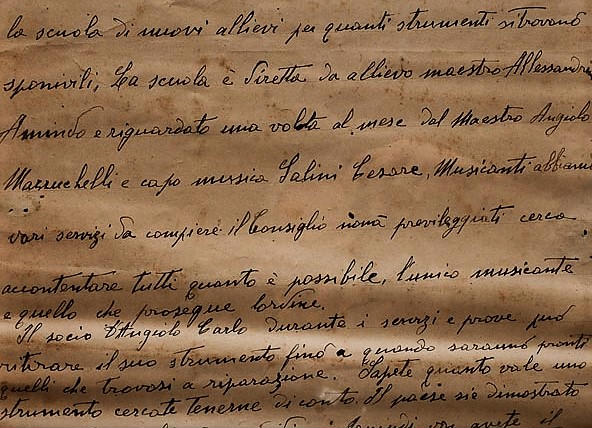 la scuola di nuovi allievi per quanti strumenti si trovano
sponivili, La scuola è diretta da allievo maestro Allessandri
Amindo e riguardato una volta al mese dal Maestro Angiolo
Mazzuchelli e capo musica Salini Cesare, Musicanti abbiamo
vari servizi da compiere il Consiglio non à previleggiati cerca
accontentare tutti quanto è possibile, l'unico musicante
e quello che prosegue l'ordine.
Il socio D'Angiolo Carlo durante i servizi e prove può
ritirare il suo strumento fino a quando saranno pronti
quelli che trovasi a riparazione. Sapete quanto vale uno
strumento cercate tenerne di conto. Il paese si è dimostrato